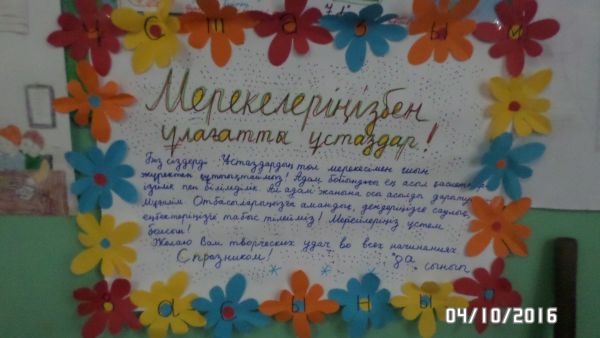 Ұ с т а з ы м
Мерекелеріңізбен
ұлағатты ұстаздар!
Біз сіздерді Ұстаздардың төл мерекесімен шын
жүректен құттықтаймыз! Адам бойындағы ең асыл қасиеттер
ізгілік пен білімділік. Ал адам жанына осы асылды
Мұғалім. Отбасыларыңызға амандық, дендеріңізге саулық,
еңбектеріңізге табыс тілейміз! Мерейлеріңіз үстем
болсын!
Желаю Вам творческих удач во всех начинаниях
С празником!
"да
сынып
04/10/2016